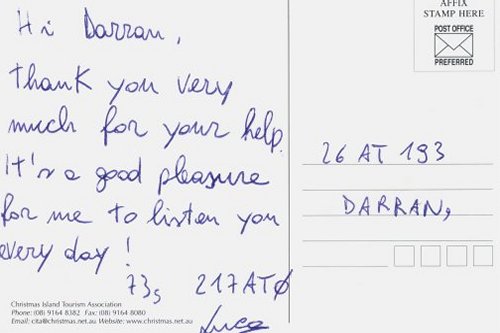 Hi Darran,
Thank you very
much for your help.
It's a good pleasure
for me to listen you
every day!
73s 217ATØ
Luca
Christmas Island Tourism Association
Phone: (08) 9164 8382 Fax: (08) 9164 8080
Email: cita@christmas.net.au Website: www.christmas.net.au
AFFIX
STAMP HERE
POST OFFICE
PREFERRED
26 AT 193
DARRAN,